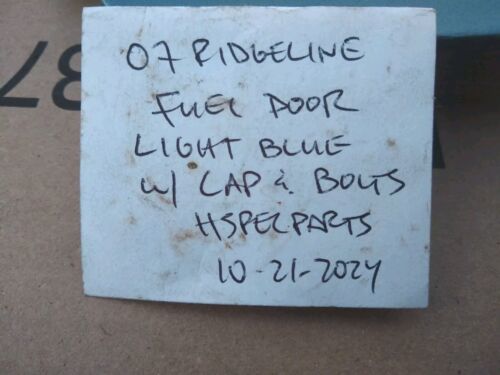 07 RIDGELINE
FUEL DOOR
LIGHT BLUE
W/ CAP & BOLTS
HSPECPARTS
10-21-2024